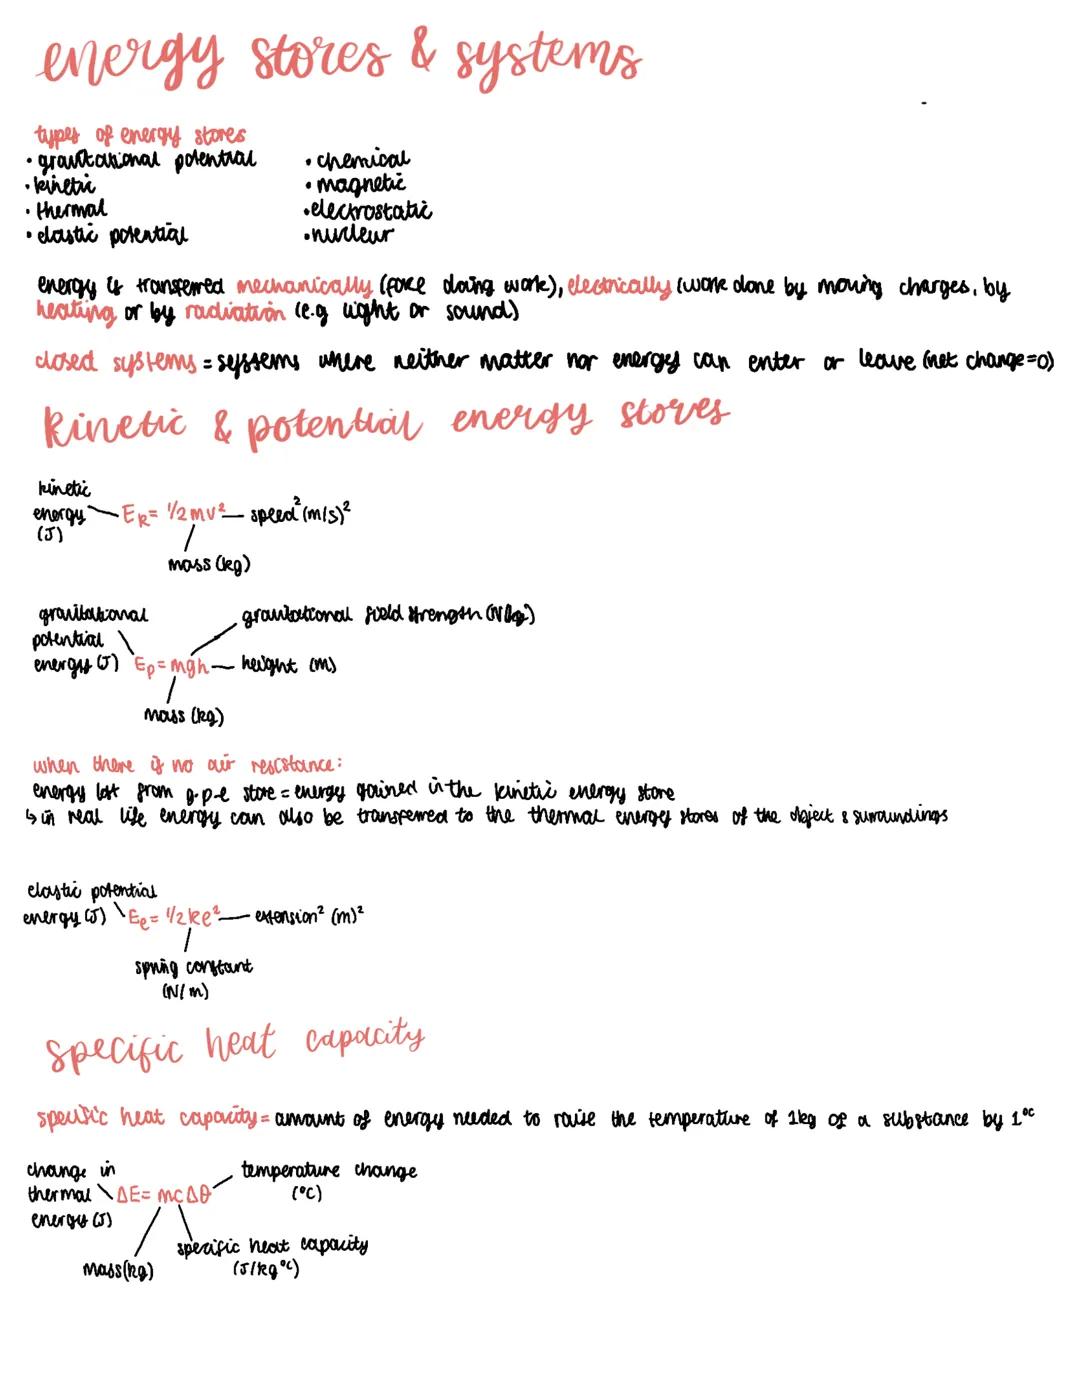 energy stores & systems
types of energy stores
• gravitational potential
• kinetic
• thermal
• elastic potential
• chemical
• magnetic
• electrostatic
• nuclear
energy is transferred mechanically (force doing work), electrically (work done by moving charges, by
heating or by radiation (e.g light or sound)
closed systems = systems where neither matter nor energy can enter or leave (net change=0)
kinetic & potential energy stores
kinetic
energy
(J)
Ek= 1/2mv² — speed² (m/s)²
mass (kg)
gravitational
potential
energy (J)
gravitational field strength (N/kg)
Ep=mgh — height (m)
mass (kg)
when there is no air resistance:
energy lost from g.p.e store = energy gained in the kinetic energy store
↳ in real life energy can also be transferred to the thermal energy stores of the object & surroundings
elastic potential
energy (J)
Ee= 1/2ke² — extension² (m)²
spring constant
(N/m)
specific heat capacity
specific heat capacity = amount of energy needed to raise the temperature of 1kg of a substance by 1°C
change in
thermal
energy (J)
temperature change
(°C)
ΔE= mcΔθ
specific heat capacity
(J/kg°C)
mass(kg)